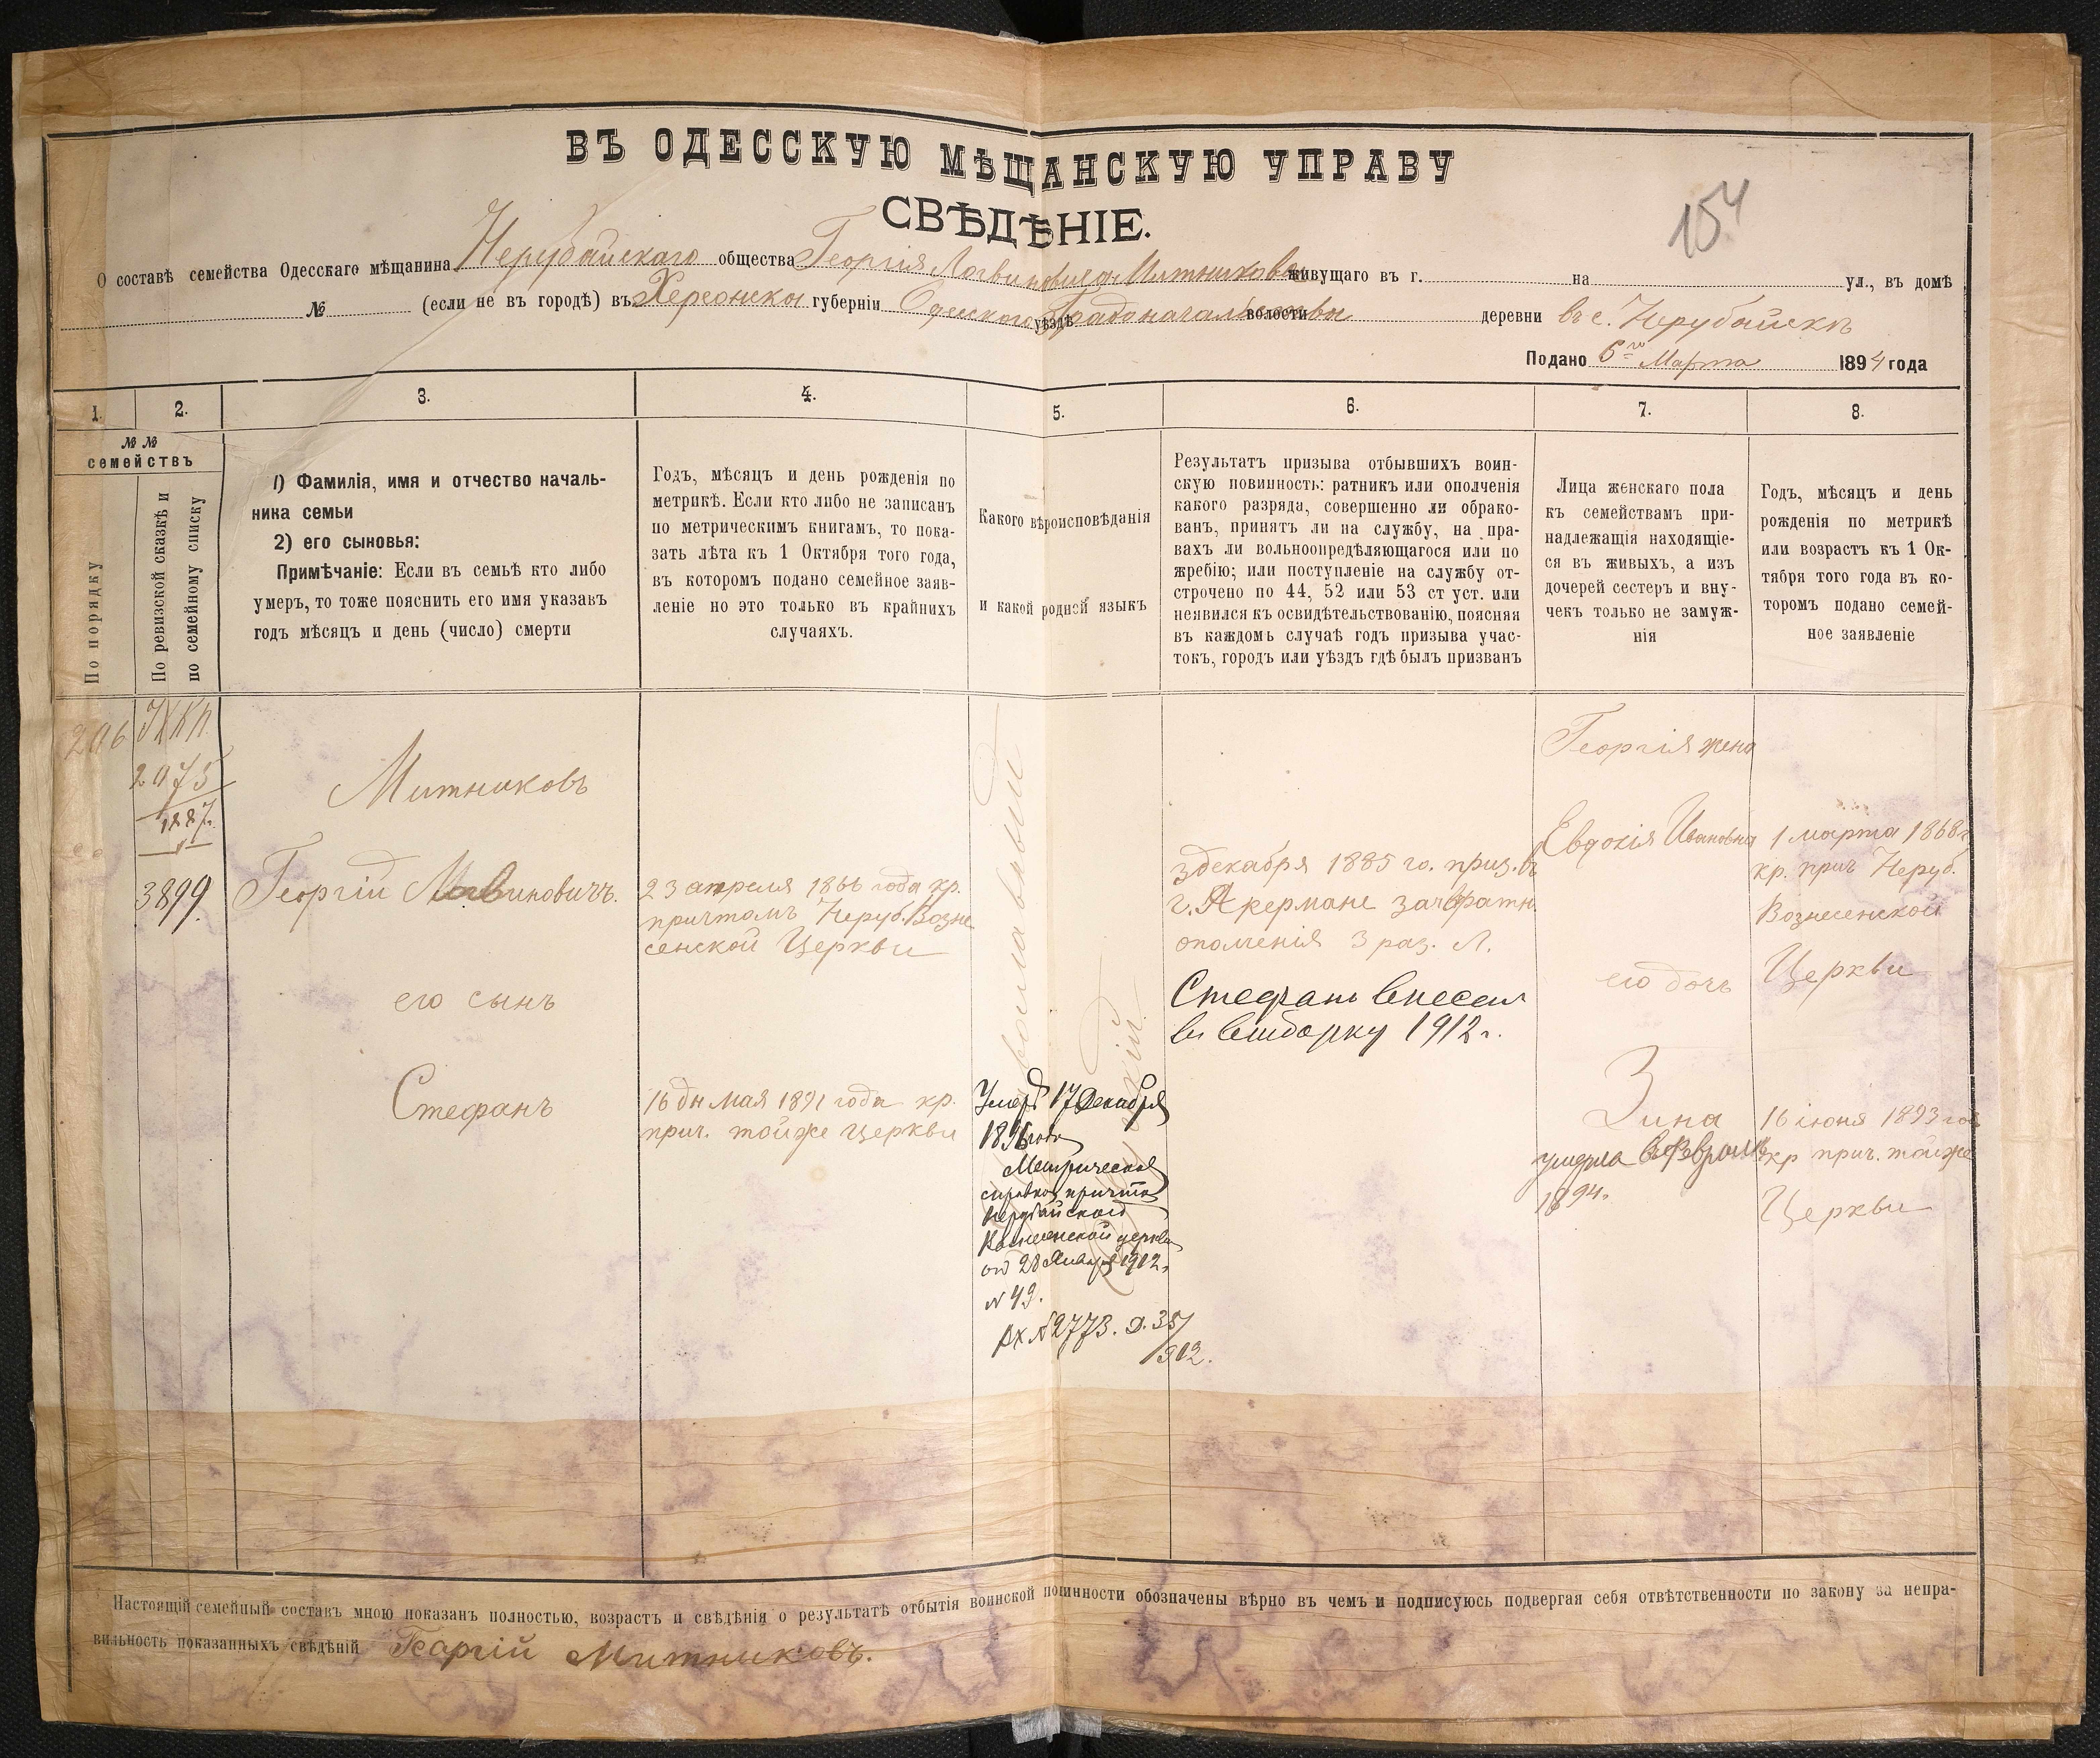 ВЪ ОДЕССКУЮ МѢЩАНСКУЮ УПРАВУ
СВѢДѢНІЕ.
154
О составѣ семейства Одесскаго мѣщанина Нерубайскаго общества Георгія Логвиновича Митникова живущаго въ г. на ул., въ домѣ
№ (если не въ городѣ) въ Херсонской губерніи Одесскаго Градоначальства уѣздѣ волости деревни въ с. Нерубайскѣ
Подано 6го Марта 1894 года
1. 2. 3. 4. 5. 6. 7. 8.
№ №
семействъ
По порядку
По ревизской сказкѣ и
по семейному списку
1) Фамилія, имя и отчество началь-
ника семьи
2) его сыновья:
Примѣчаніе: Если въ семьѣ кто либо
умеръ, то тоже пояснить его имя указавъ
годъ мѣсяцъ и день (число) смерти
Годъ, мѣсяцъ и день рожденія по
метрикѣ. Если кто либо не записанъ
по метрическимъ книгамъ, то пока-
зать лѣта къ 1 Октября того года,
въ которомъ подано семейное заяв-
леніе но это только въ крайнихъ
случаяхъ.
Какого вѣроисповѣданія
и какой родной языкъ
Результатъ призыва отбывшихъ воин-
скую повинность: ратникъ или ополченія
какого разряда, совершенно ли обрако-
ванъ, принятъ ли на службу, на пра-
вахъ ли вольноопредѣляющагося или по
жребію; или поступленіе на службу от-
строчено по 44, 52 или 53 ст уст. или
неявился къ освидѣтельствованію, поясняя
въ каждомъ случаѣ годъ призыва учас-
токъ, городъ или уѣздъ гдѣ былъ призванъ
Лица женскаго пола
къ семействамъ при-
надлежащія находящіе-
ся въ живыхъ, а изъ
дочерей сестеръ и вну-
чекъ только не замуж-
нія
Годъ, мѣсяцъ и день
рожденія по метрикѣ
или возрастъ къ 1 Ок-
тября того года въ ко-
торомъ подано семей-
ное заявленіе
206
2075
1887
3899.
Митниковъ
Георгій Логвиновичъ.
его сынъ
Стефанъ
23 апреля 1866 года кр.
причтомъ Неруб. Возне
сенской Церкви
16 дн мая 1891 года кр.
прич. тойже церкви
православный
Умеръ 17 Декабря
1896 года
Метрическая
справка причта
Нерубайской
Вознесенской церкви
от 28 Января 1912 г.
№ 49.
вх № 2773. д. 35/
1912.
3 декабря 1885 го. приз. въ
г. Акермане зач. ратн.
ополченія 3 раз. Л.
Стефанъ внесен
въ выборку 1912 г.
Георгія жена
Евдокія Ивановна
его дочь
Зина
умерла въ Февралѣ
1894.
1 марта 1868 г.
кр. прич Неруб.
Вознесенской
Церкви
16 іюня 1893 год
кр прич. тойже
Церкви
Настоящій семейный составъ мною показанъ полностью, возрастъ и свѣдѣнія о результатѣ отбытія воинской повинности обозначены вѣрно въ чемъ и подписуюсь подвергая себя отвѣтственности по закону за непра-
вильность показанныхъ свѣдѣній Георгій Митниковъ.